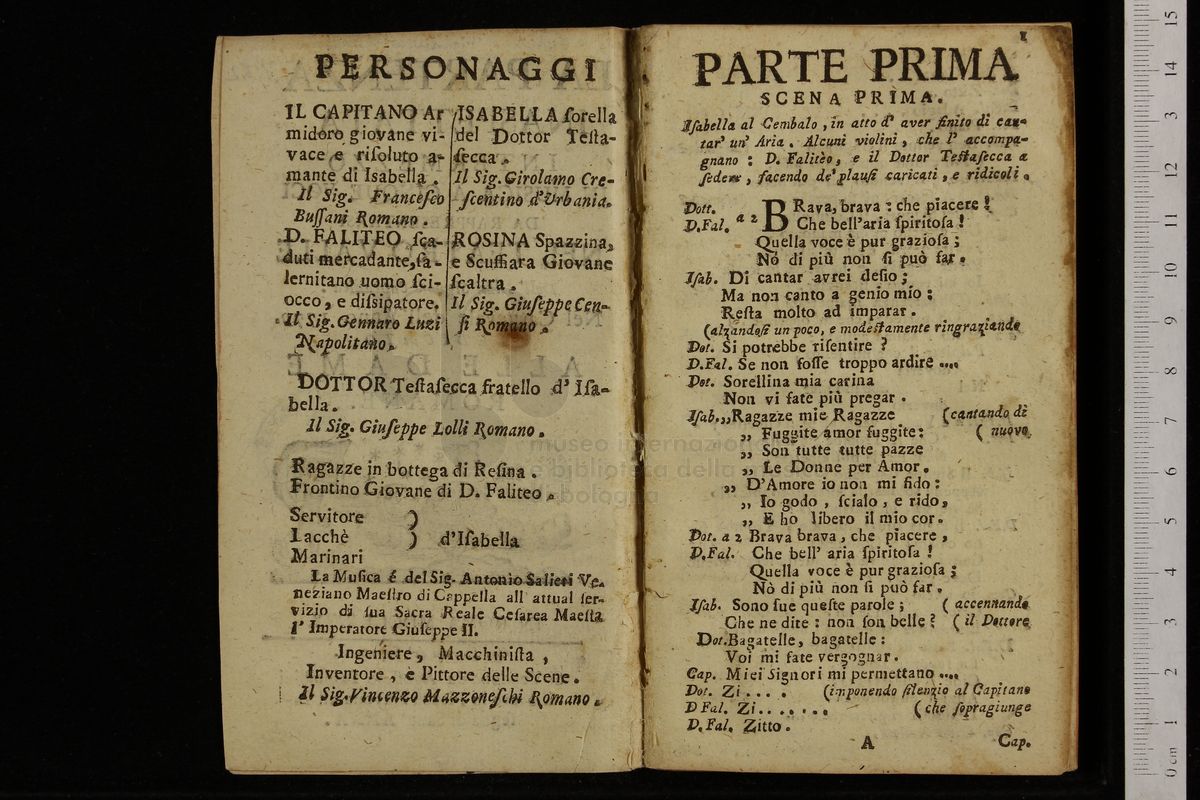 PERSONAGGI
IL CAPITANO Ar
midoro giovane vi-
vace e risoluto a-
mante di Isabella.
Il Sig. Francesco
Bussani Romano.
D. FALITEO sca-
duti mercadante, sa-
lernitano uomo sci-
occo, e dissipatore.
Il Sig. Gennaro Luzi
Napolitano.
ISABELLA sorella
del Dottor Testa-
secca.
Il Sig. Girolamo Cre-
scentino d'Urbania.
ROSINA Spazzina,
e Scuffiara Giovane
scaltra.
Il Sig. Giuseppe Cen-
si Romano.
DOTTOR Testasecca fratello d' Isa-
bella.
Il Sig. Giuseppe Lolli Romano.
Ragazze in bottega di Resina.
Frontino Giovane di D. Faliteo.
Servitore
Lacchè } d'Isabella
Marinari
La Musica é del Sig. Antonio Salieri Ve-
neziano Maestro di Cappella all' attual ser-
vizio di sua Sacra Reale Cesarea Maesta
l' Imperatore Giuseppe II.
Ingeniere, Macchinista,
Inventore, e Pittore delle Scene.
Il Sig. Vincenzo Mazzoneschi Romano.
PARTE PRIMA
SCENA PRIMA.
Isabella al Cembalo, in atto d' aver finito di can-
tar' un' Aria. Alcuni violini, che l' accompa-
gnano: D. Faliteo, e il Dottor Testasecca a
sedere, facendo de' plausi caricati, e ridicoli.
Dott. BRava, brava: che piacere!
D.Fal. a 2 Che bell'aria spiritosa!
Quella voce è pur graziosa;
Nò di più non si può far.
Isab. Di cantar avrei desio;
Ma non canto a genio mio:
Resta molto ad imparar.
(alzandosi un poco, e modestamente ringraziando
Dot. Si potrebbe risentire?
D.Fal. Se non fosse troppo ardire ....
Dot. Sorellina mia carina
Non vi fate più pregar.
Isab. ,,Ragazze mie Ragazze (cantando di
,, Fuggite amor fuggite: ( nuovo.
,, Son tutte tutte pazze
,, Le Donne per Amor.
,, D'Amore io non mi fido:
,, Io godo, scialo, e rido,
,, E ho libero il mio cor.
Dot. a 2 Brava brava, che piacere,
D.Fal. Che bell' aria spiritosa!
Quella voce è pur graziosa;
Nò di più non si può far.
Isab. Sono sue queste parole; ( accennando
Che ne dite: non son belle? ( il Dottore
Dot. Bagatelle, bagatelle:
Voi mi fate vergognar.
Cap. Miei Signori mi permettano ....
Dot. Zi.... (imponendo silenzio al Capitano
D Fal. Zi....... ( che sopragiunge
D.Fal. Zitto.
A Cap.
museo internazion
e biblioteca della
bologna
0 cm 1 2 3 4 5 6 7 8 9 10 11 12 13 14 15